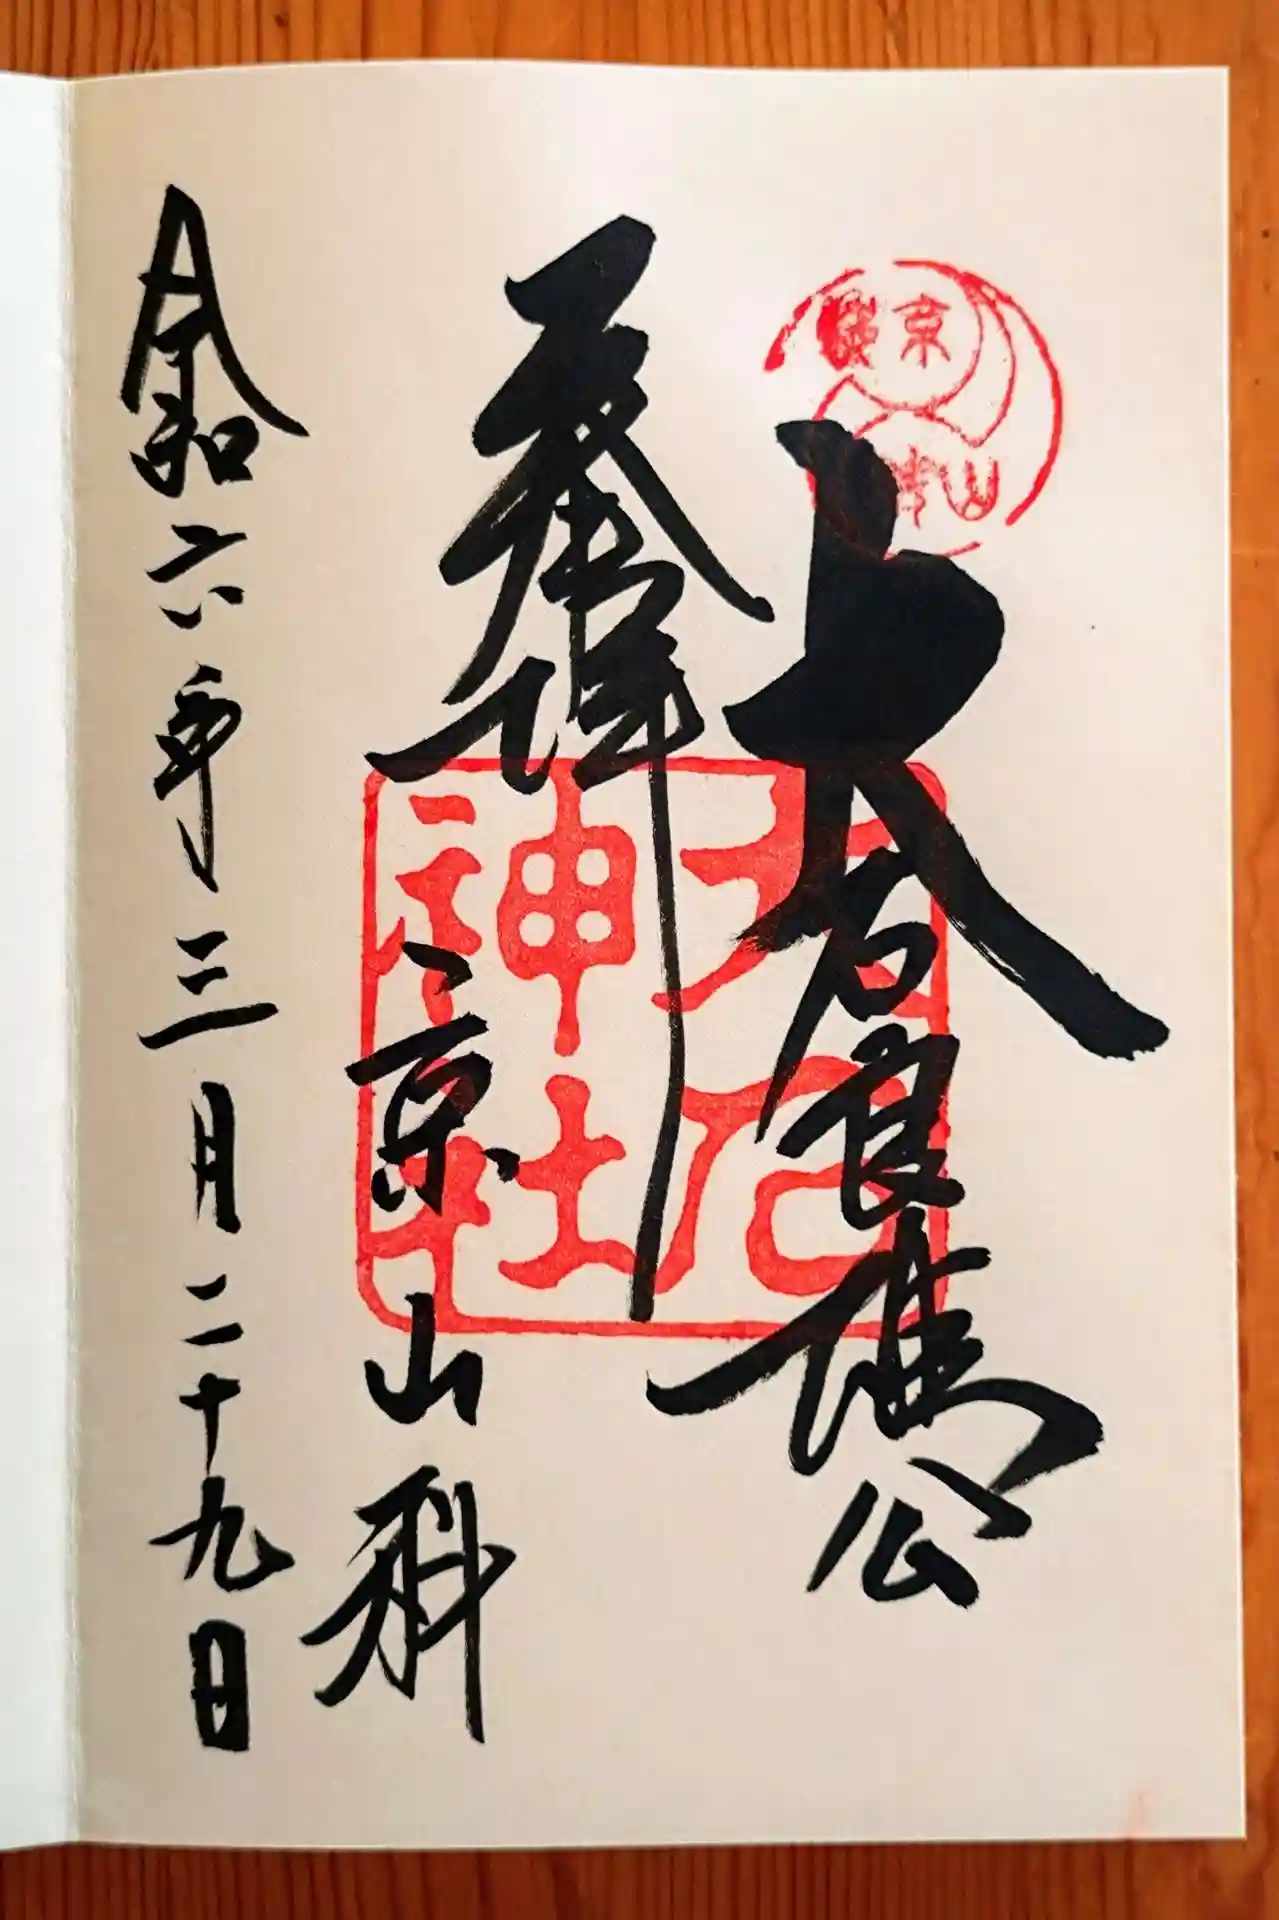 大石良雄公
奉拝
京山科
令和六年三月二十九日
大石
神社